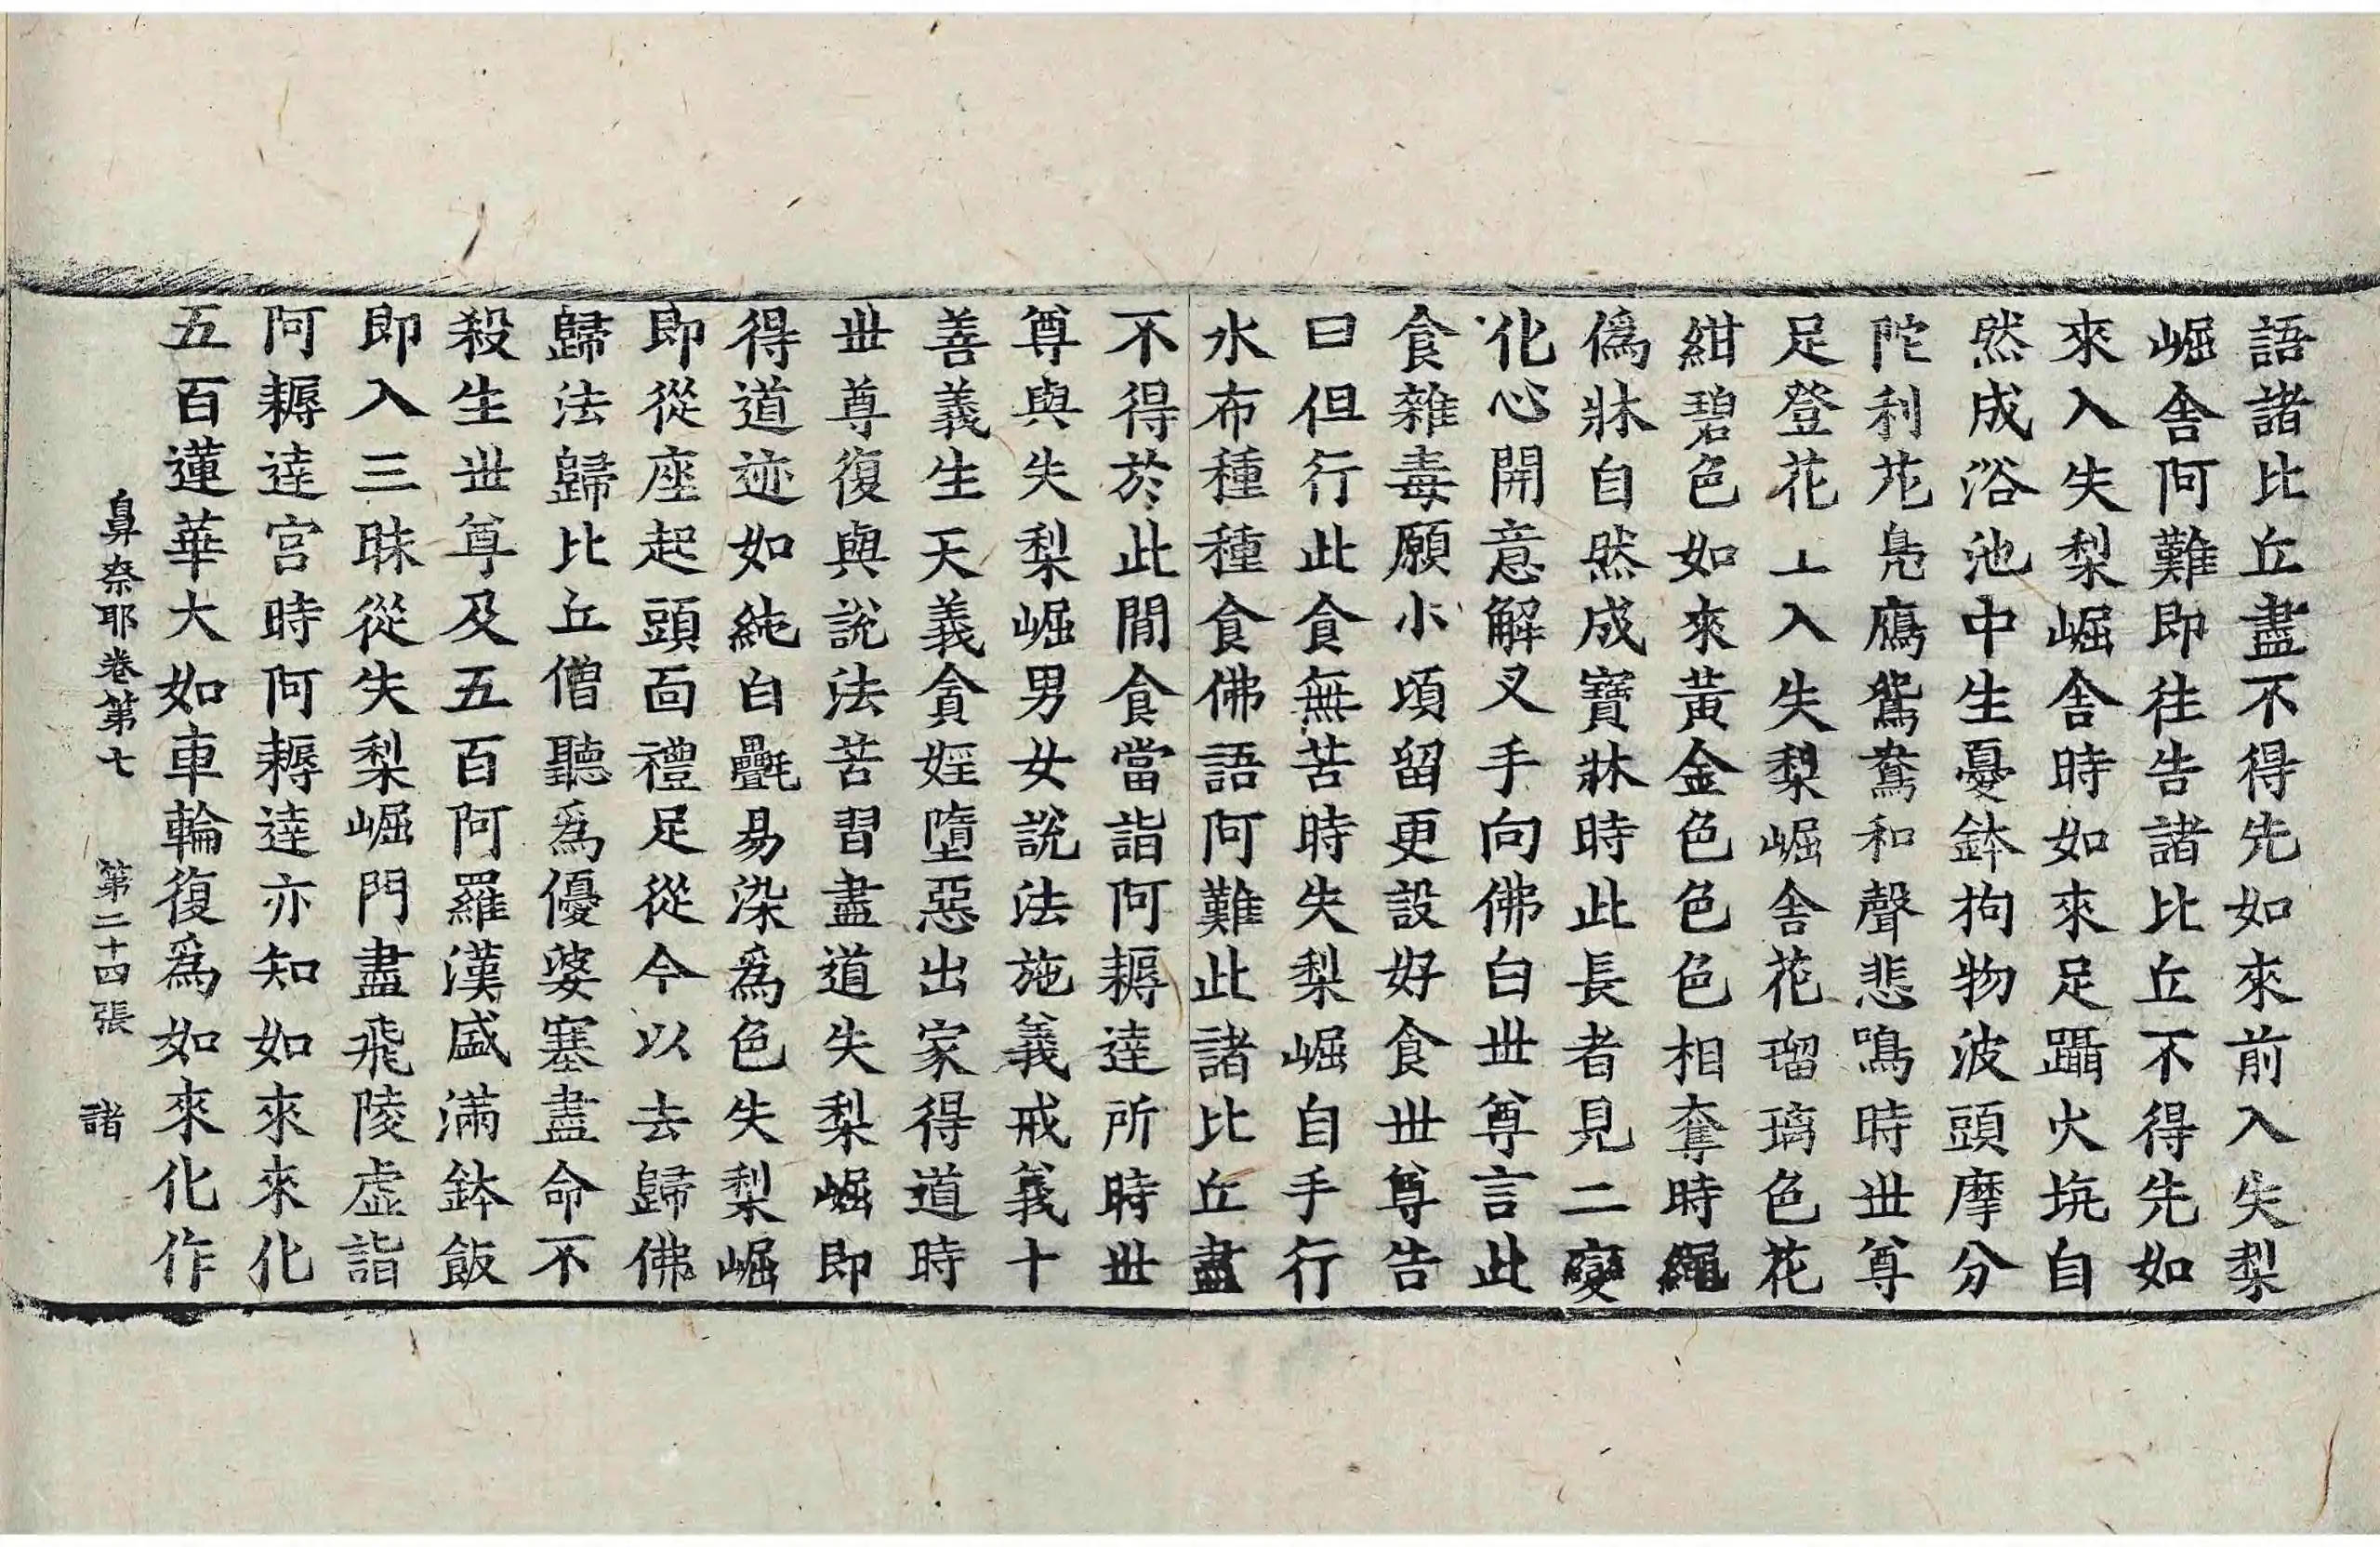 語諸比丘盡不得先如來前入失梨
崛舍阿難即往告諸比丘不得先如
來入失梨崛舍時如來足躡火坑自
然成浴池中生憂鉢拘物波頭摩分
陀利花鳧鴈鴛鴦和聲悲鳴時世尊
足登花上入失梨崛舍花瑠璃色花
紺碧色如來黃金色色色相奪時繩
爲牀自然成寶牀時此長者見二變
化心開意解叉手向佛白世尊言此
食雜毒願小頃留更設好食世尊告
曰但行此食無苦時失梨崛自手行
水布種種食佛語阿難此諸比丘盡
不得於此間食當詣阿耨達所時世
尊與失梨崛男女說法施義戒義十
善義生天義貪婬墮惡出家得道時
世尊復與說法苦習盡道失梨崛即
得道迹如純白氎易染爲色失梨崛
即從座起頭面禮足從今以去歸佛
歸法歸比丘僧聽爲優婆塞盡命不
殺生世尊及五百阿羅漢盛滿鉢飯
即入三昧從失梨崛門盡飛陵虛詣
阿耨達宮時阿耨達亦知如來來化
五百蓮華大如車輪復爲如來化作
鼻奈耶卷第七 第二十四張 諸